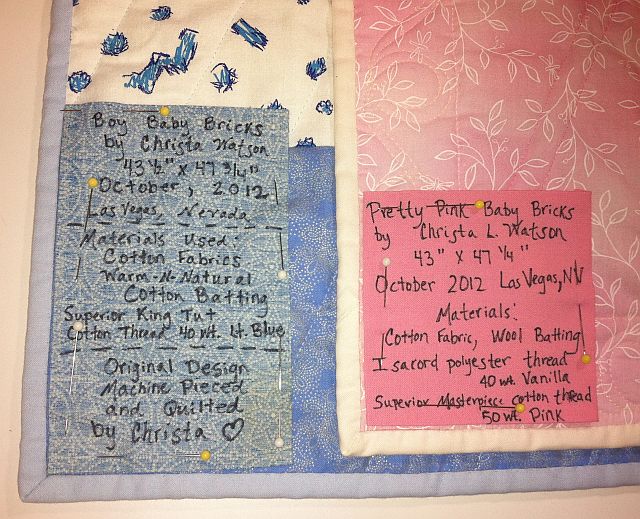 Boy Baby Bricks
by Christa Watson
43 ½" X 47 ¾"
October, 2012
Las Vegas, Nevada
Materials Used:
Cotton Fabrics
Warm-N-Natural
Cotton Batting
Superior King Tut
Cotton Thread 40 wt. Lt. Blue
Original Design
Machine Pieced
and Quilted
by Christa ♡
Pretty Pink Baby Bricks
by Christa L. Watson
43" X 47 ¼"
October 2012 Las Vegas, NV
Materials:
Cotton Fabric, Wool Batting
Isacord polyester thread
40 wt. Vanilla
Superior Masterpiece cotton thread
50 wt. Pink